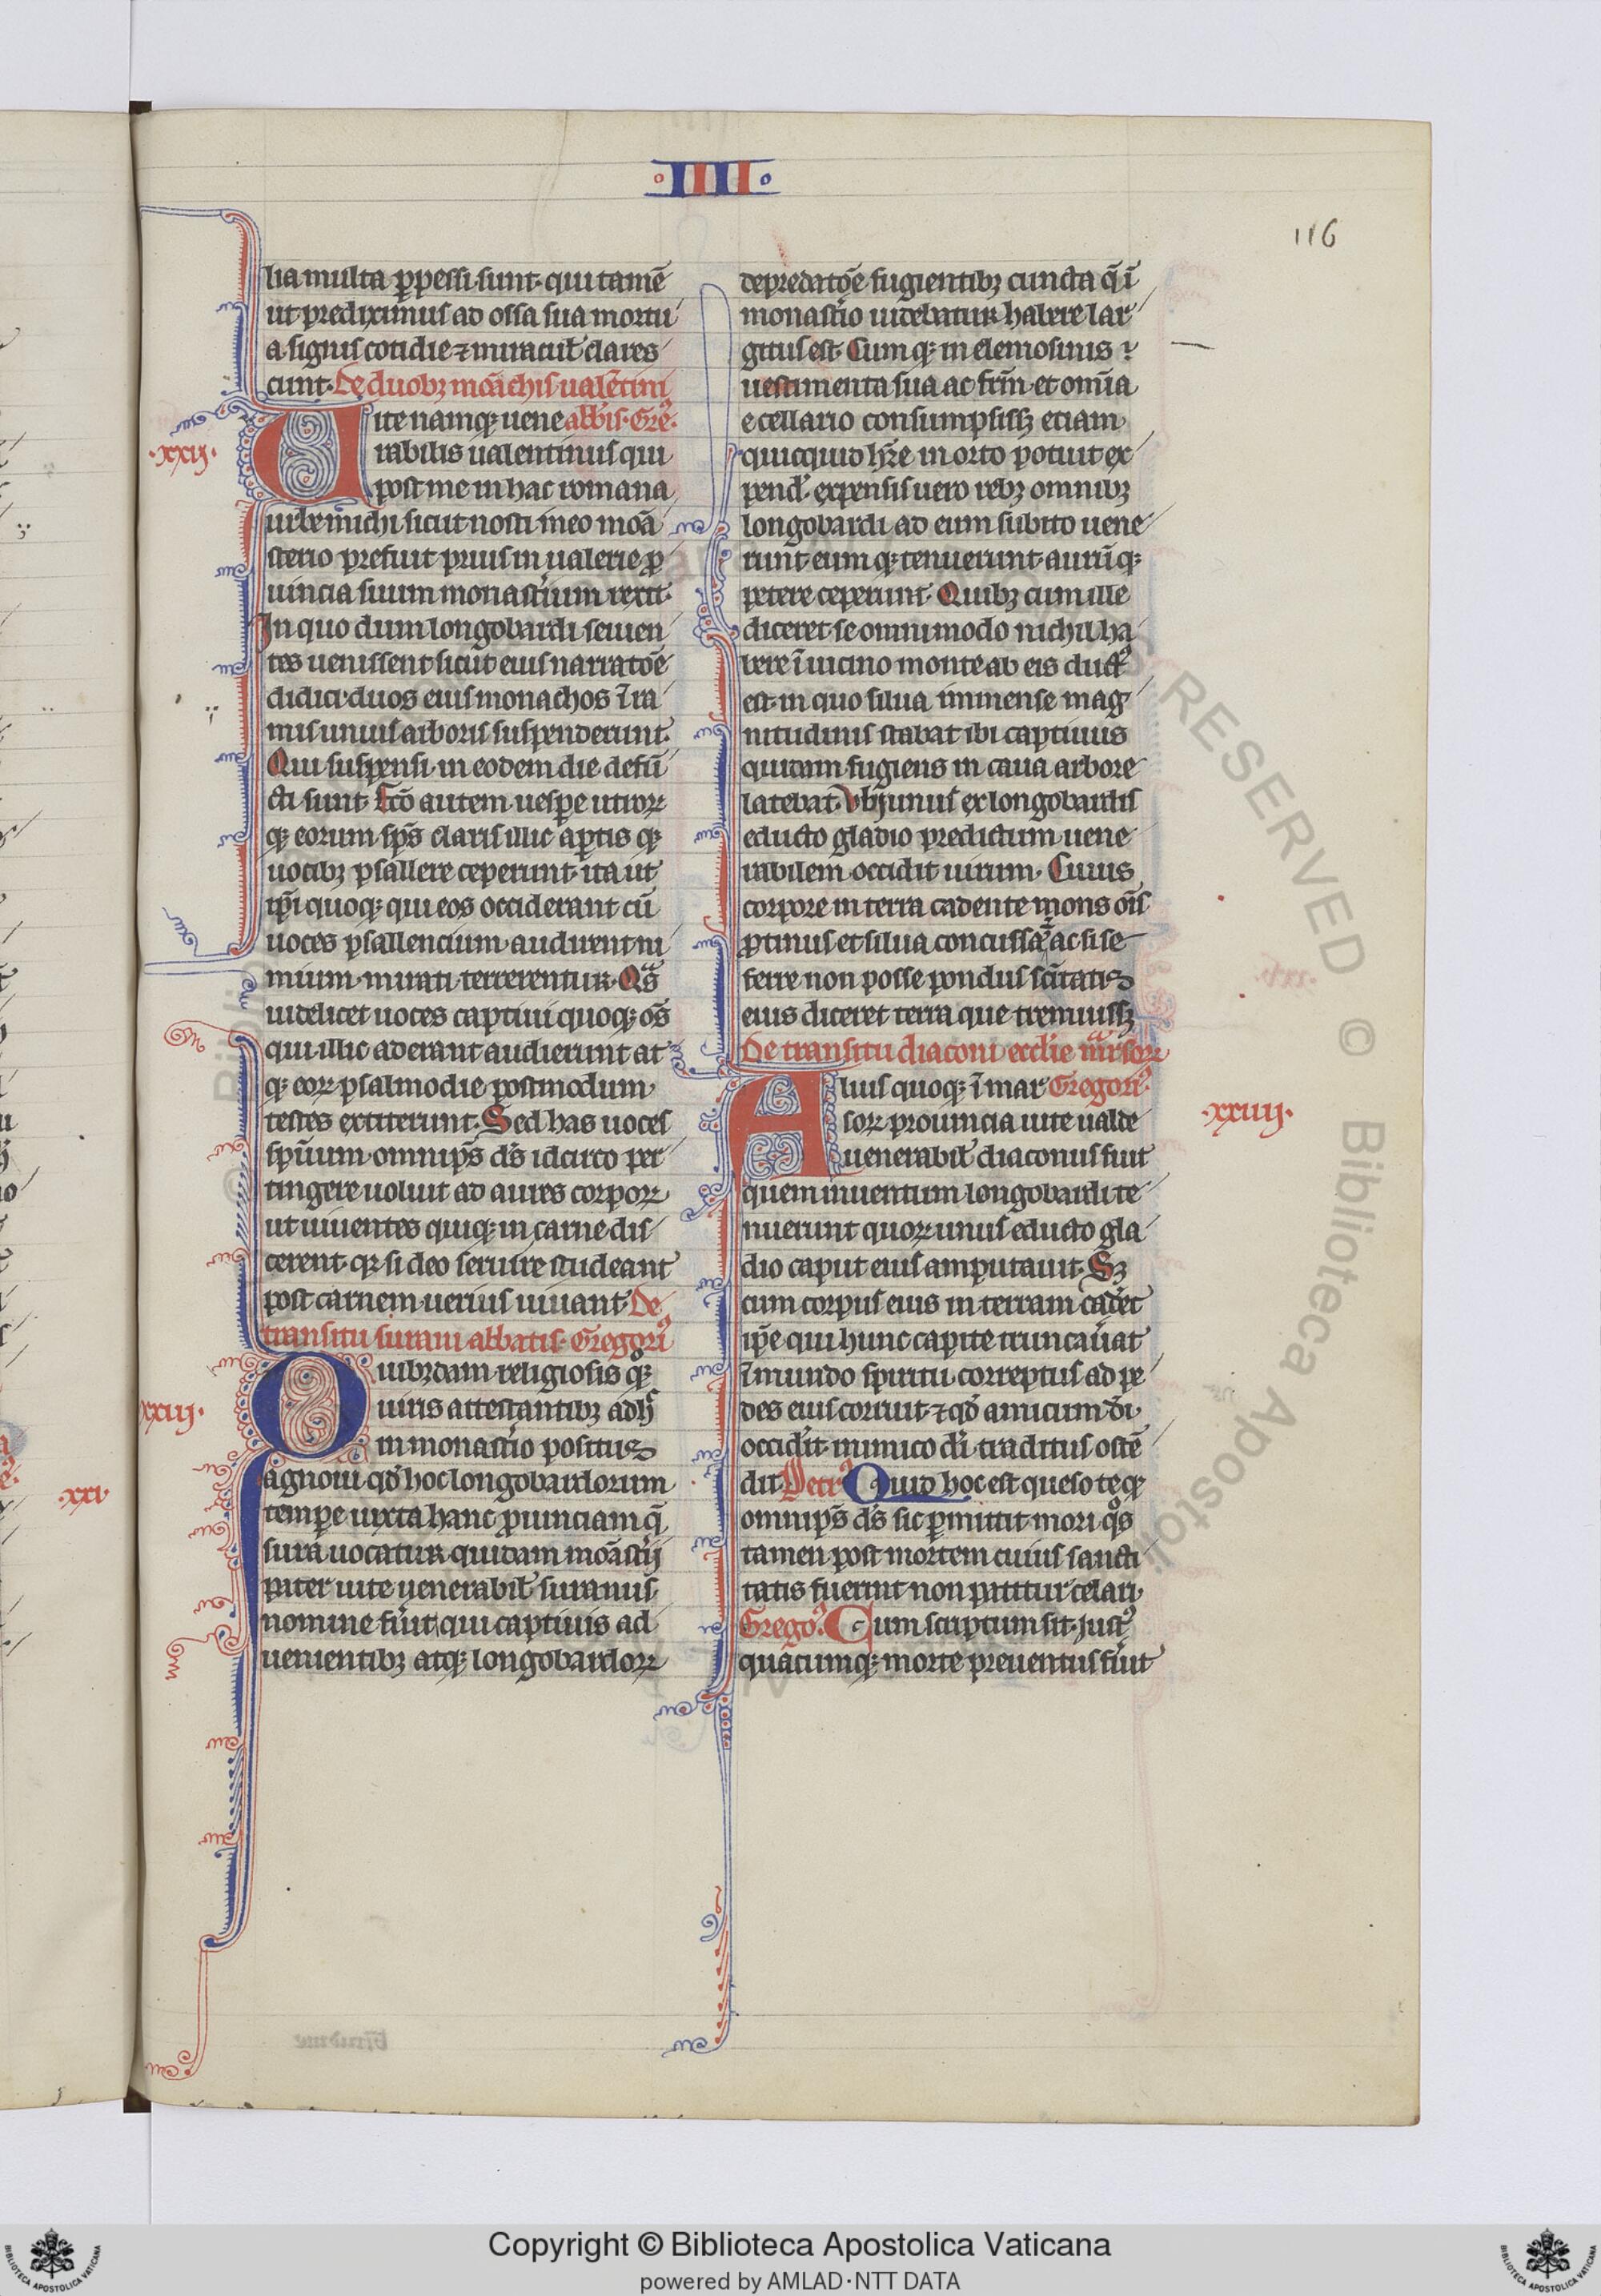 IIII
116
lia multa ꝑpessi sunt· qui tamē
ut prediximus ad ossa sua mortu
a signis cotidie ⁊ miracul̓ clares
cunt· De duobꝫ mōachis ualētini
Uite namqꝫ uene abb̄is· Gre᷒·
·xxij·
rabilis ualentinus qui
post me in hac romana
urbe michi sicut nosti meo moā
sterio prefuit prius in ualerie ꝓ
uincia suum monast̓ium rexit·
In quo dum longobardi seuien
tes uenissent sicut eius narratōe
didici· duos eius monachos ī ra
mis unius arboris suspenderunt·
Qui suspensi in eodem die defū
cti sunt· Fcō autem uesꝑe utroꝝ
qꝫ eorum sp̄s claris illic aꝑtis qꝫ
uocibꝫ psallere ceperunt· ita ut
ip̄i quoqꝫ qui eos occiderant cū
uoces psallencium audirent ni
mium mirati terrerentur· Qᵃs
uidelicet uoces captiui quoqꝫ oēs
qui illic aderant audierunt at
qꝫ eoꝝ psalmodie postmodum
testes extiterunt· Sed has uoces
spūum omnip̄s d̄s idcirco per
tingere uoluit ad aures corpoꝝ
ut uiuentes quiqꝫ in carne dis
cerent· qꝛ si deo seruire studeant
post carnem uerius uiuant· De
transitu surani abbatis· Gregori᷒
Quibꝫdam religiosis qͦqꝫ
xxiij·
uiris attestantibꝫ adh᷒
in monast̓io positus
agnoui qd̓ hoc longobardorum
temꝑe iuxta hanc ꝓuinciam q̄
sura uocatur quidam mōast̓ij
pater uite uenerabil̓ suranus
nomine fu̓it, qui captiuis ad
uenientibꝫ atqꝫ longobardoꝝ
depredatōe fugientibꝫ cuncta q̄ ī
monast̓io uidebatur habere lar
gitus est· Cumqꝫ in elemosinis
uestimenta sua ac fr̄m et omīa
e cellario consumpsissꝫ etiam
quicquid hr̄e in orto potuit ex
pend̓· expensis uero rebꝫ omnibꝫ
longobardi ad eum subito uene
runt eumqꝫ tenuerunt· aurūqꝫ
petere ceperunt· Quibꝫ cum ille
diceret se omnimodo nichil ha
bere ī uicino monte ab eis duct᷒
est· in quo silua immense mag
nitudinis stabat ibi captiuus
quidam fugiens in caua arbore
latebat· Vbi unus ex longobardis
educto gladio predictum uene
rabilem occidit uirum· Cuius
corpore in terra cadente mons oīs
ꝓtinus et silua concussa ē ac si se
ferre non posse pondus sc̄itatis
eius diceret terra que tremuissꝫ
De transitu diaconi ecclīe mar̄soꝝ
Alius quoqꝫ ī mar Gregori᷒·
·xxiiij·
soꝝ prouincia uite ualde
uenerabil̓ diaconus fuit
quem inuentum longobardi te
nuerunt quoꝝ unus educto gla
dio caput eius amputauit· Sꝫ
cum corpus eius in terram cad̓et
ip̄e qui hunc capite truncau̓at
īmundo spiritu correptus ad pe
des eius corruit ⁊ qd̓ amicum d̄i
occid̓it inimico d̄i traditus ostē
dit· Petr᷒ Quid hoc est queso te qꝫ
omnip̄s d̄s sic ꝑmittit mori qͦs
tamen post mortem cuius sancti
tatis fuerint non patitur celari
Grego᷒· Cum scriptum sit· just᷒
quacumqꝫ morte preuentus fu̓it
·xxi·
Copyright © Biblioteca Apostolica Vaticana
powered by AMLAD·NTT DATA